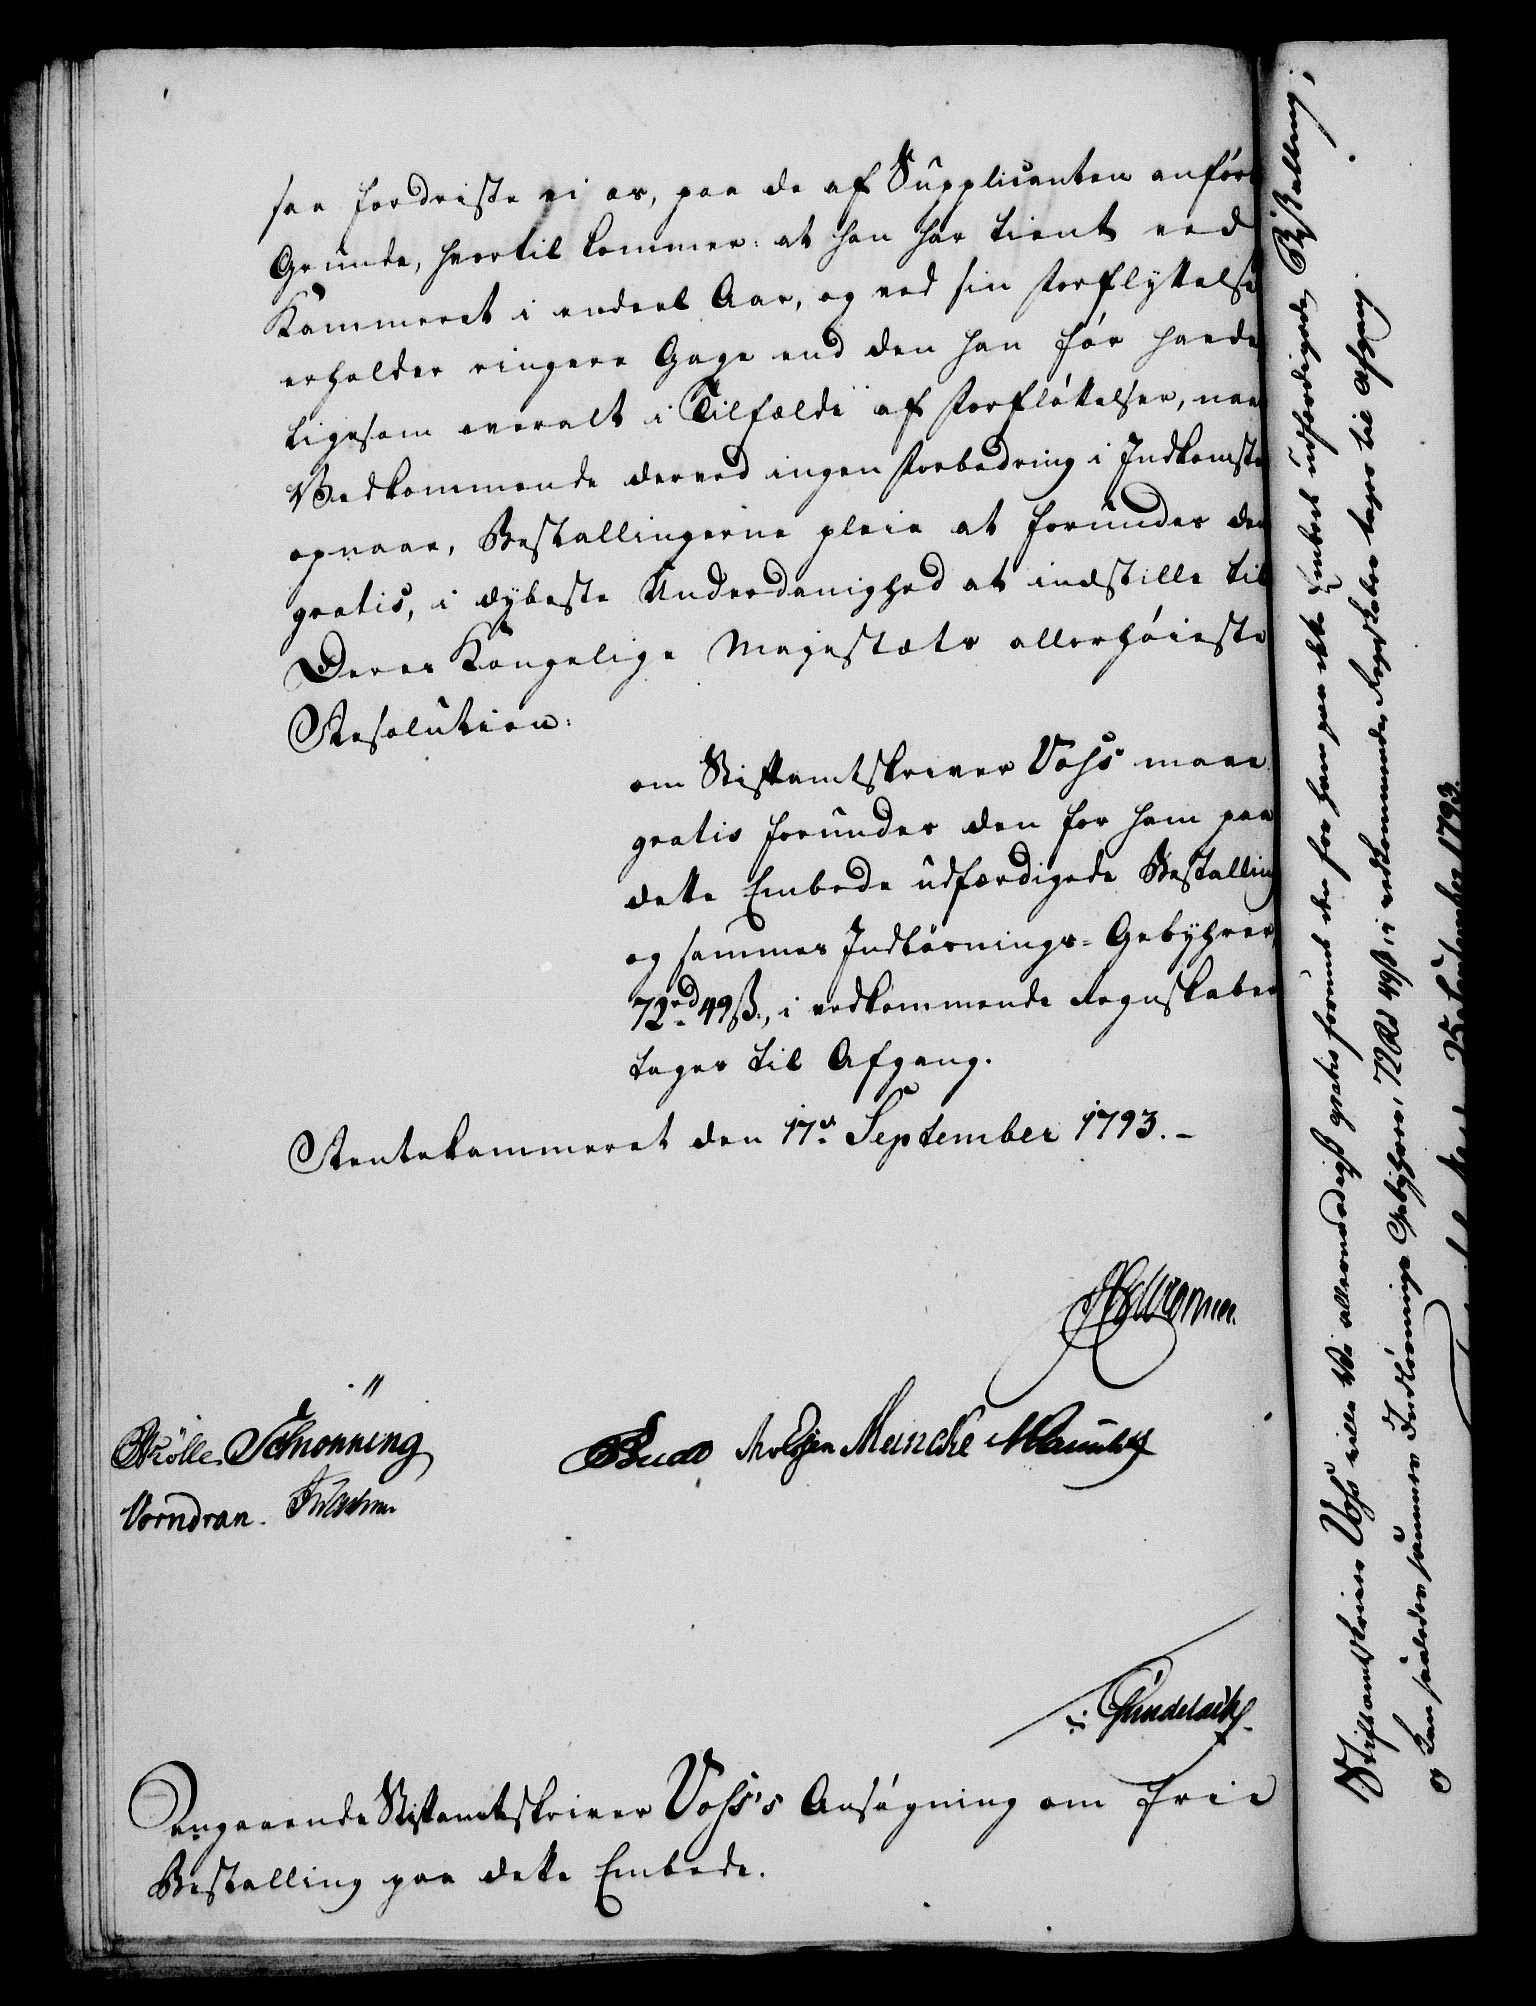 saa fordriste vi os, paa de af Supplicanten anført
Grunde, hvortil kommer: at han har tient ved
Kammeret i endeel Aar, og ved sin Forflyttelse
erholder ringere Gage end den han før havde
ligesom overalt i Tilfælde af Forfløttelser, naar
Vedkommende derved ingen Forbedring i Indkomste
opnaae, Bestallingerne pleie at forundes dem
gratis, i dybeste Underdanighed at indstille til
Deres Kongelige Majestæts allerhøieste
Resolution:
om Stiftamtskriver Voss maae
gratis forundes den for ham paa
dette Embede udfærdigede Bestalling
og sammes Indløsnings-Gebyhrer,
72 rd 49 ß, i vedkommende Regnskaber
tages til Afgang.
Rentekammeret den 17de September 1793.-
Schønning
Meincke
Vorndran.
Gundelach.
Angaaende Stiftamtskriver Voss's Ansøgning om frie
Bestalling paa dette Embede.
Stiftamtskriver Voss ville Vi allernaadigst gratis forunt den for ham paa dette Embede udfærdigede Bestalling;
og kan saaledes sammes Indløsnings Gebyhrer, 72 Rd 49 ß, i vedkommende Regnskaber tages til Afgang.
25 September 1793.